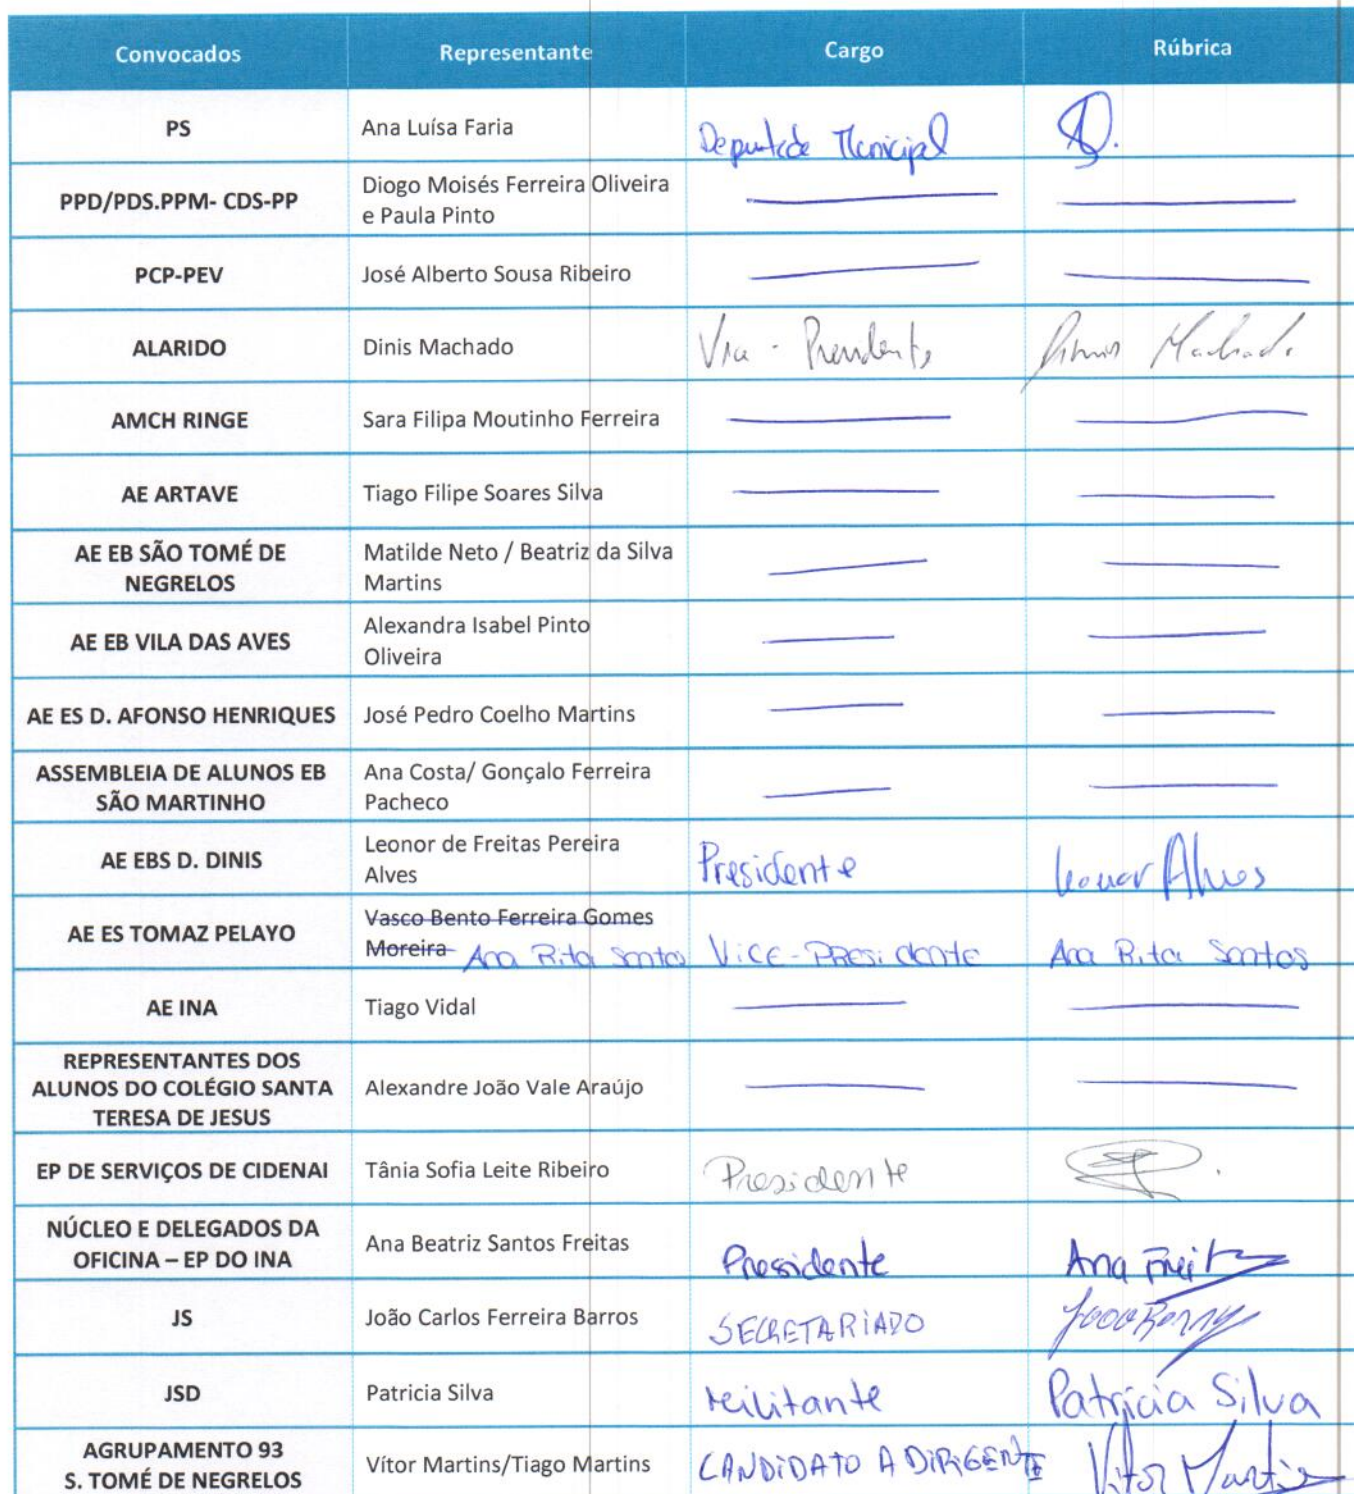 Convocados Representante Cargo Rúbrica
PS Ana Luísa Faria Deputada Municipal
PPD/PDS.PPM- CDS-PP Diogo Moisés Ferreira Oliveira
e Paula Pinto
PCP-PEV José Alberto Sousa Ribeiro
ALARIDO Dinis Machado Vice - Presidente Dinis Machado
AMCH RINGE Sara Filipa Moutinho Ferreira
AE ARTAVE Tiago Filipe Soares Silva
AE EB SÃO TOMÉ DE
NEGRELOS
Matilde Neto / Beatriz da Silva
Martins
AE EB VILA DAS AVES Alexandra Isabel Pinto
Oliveira
AE ES D. AFONSO HENRIQUES José Pedro Coelho Martins
ASSEMBLEIA DE ALUNOS EB
SÃO MARTINHO
Ana Costa/ Gonçalo Ferreira
Pacheco
AE EBS D. DINIS Leonor de Freitas Pereira
Alves
Presidente Leonor Alves
AE ES TOMAZ PELAYO Vasco Bento Ferreira Gomes
Moreira Ana Rita Santos VICE-PRESidente Ana Rita Santos
AE INA Tiago Vidal
REPRESENTANTES DOS
ALUNOS DO COLÉGIO SANTA
TERESA DE JESUS
Alexandre João Vale Araújo
EP DE SERVIÇOS DE CIDENAI Tânia Sofia Leite Ribeiro Presidente
NÚCLEO E DELEGADOS DA
OFICINA – EP DO INA
Ana Beatriz Santos Freitas Presidente Ana Freitas
JS João Carlos Ferreira Barros SECRETARIADO
JSD Patricia Silva Militante Patrícia Silva
AGRUPAMENTO 93
S. TOMÉ DE NEGRELOS
Vítor Martins/Tiago Martins CANDIDATO A DIRIGENTE Vítor Martins